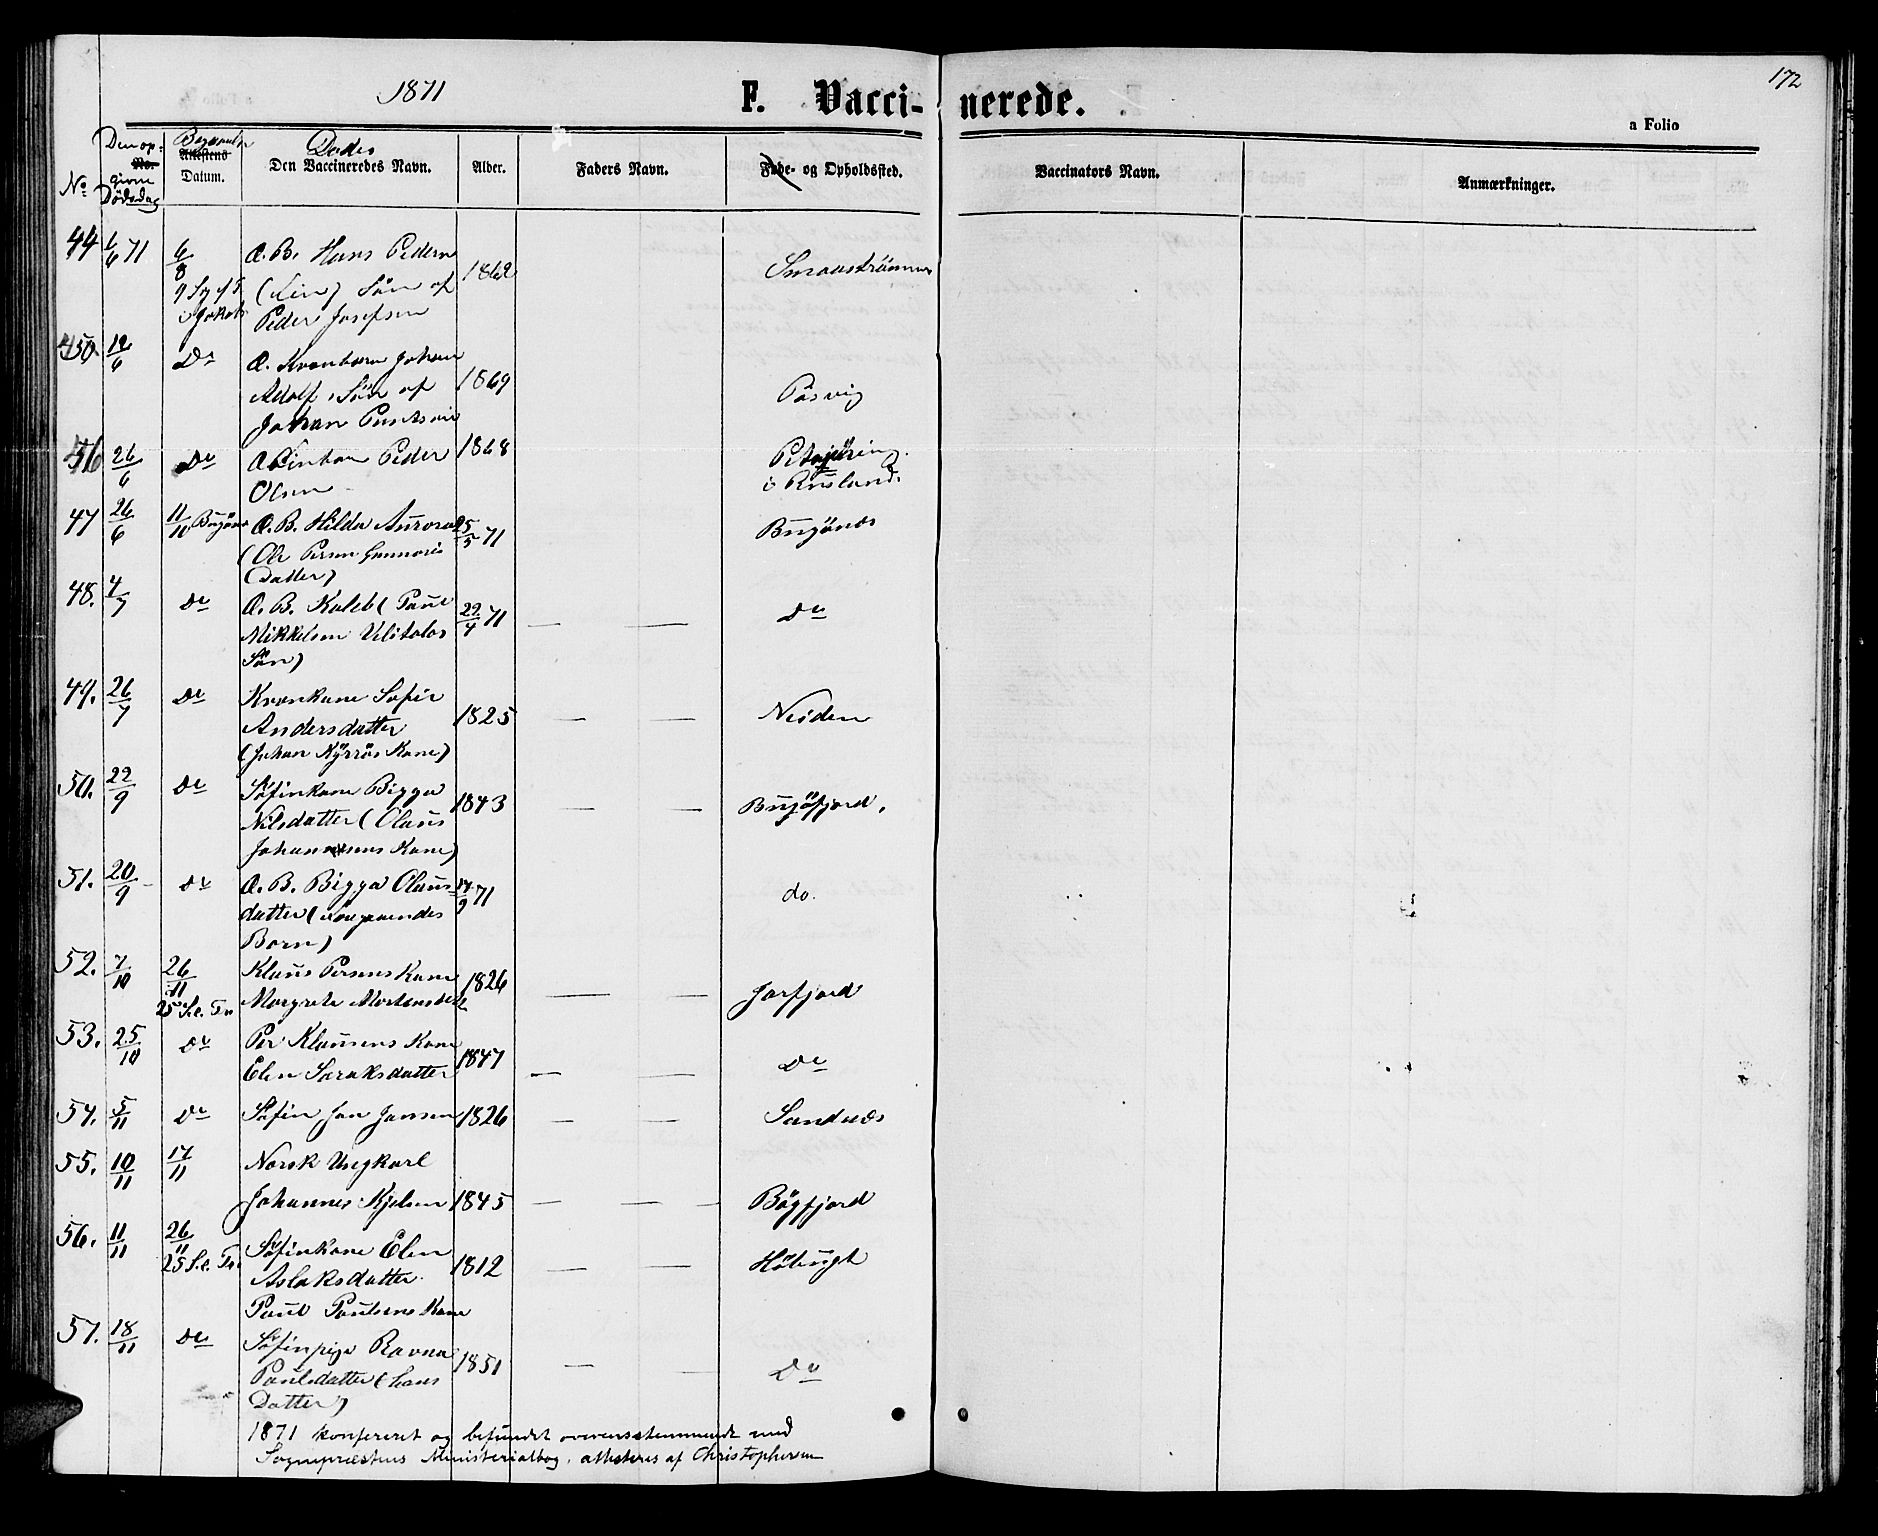 172
1871
F. Vaccinerede.
a Folio
No Den op: No. givne Dødsdag
Begravels Attestens Datum.
Dødes Den Vaccineredes Navn.
Alder.
Faders Navn.
Føde- og Opholdssted.
Vaccinators Navn.
Anmærkninger.
44 6/6 71 6/8 Æ. B. Hans Peder
(Fin) Søn af 1862 Smaastrømme
i Jakob Peder Josefsen
45 12/6 Do Æ. Kvænbarn Johan
Adolf, Søn af 1869 Pasvig
Johan
46 26/6 Do Peder 1868
Olsen i Rusland
47 26/6 11/10 Bugønæs Æ. B. Hilda Aurora 25/5 71 Bugønæs
(Ole Persen
Datter)
48. 4/7 Do Æ. B. Kaleb (Paul 22/4 71 Do
Mikkelsen
Søn)
49. 26/7 Do Kvænkone Sofie
Andersdatter 1825 Neiden
(Johan Kone)
50. 22/9 Do Søfinkone Bigga 1843 Bugøfjord.
Nilsdatter (Olaus
Johannesens Kone)
51. 20/9 Do Æ. B. Bigga Olaus 14/9 71 do.
datter (Foregaaendes
Barn)
52. 7/10 26/11 Klaus Persens Kone 1826
25 S. e. Tr. Margrete Jarfjord
53. 25/10 Do Per Klausens Kone 1847 Do
Elen
54. 5/11 Do Søfin Jon Jonsen 1826 Sandnæs
55. 10/11 17/11 Norsk Ungkarl
Johannes 1845 Bøgfjord
56. 11/11 26/11 Søfinkone Elen
25 S. e. Tr. Aslaksdatter. 1812 Høbugt
Paul Paulsens Kone
57. 18/11 Do Søfinpige Ravna 1851 Do
Paulsdatter (hans
Datter)
1871 konfereret og befundet overensstemmende med
Sognepræstens Ministerialbog, attesteres af Christophersen